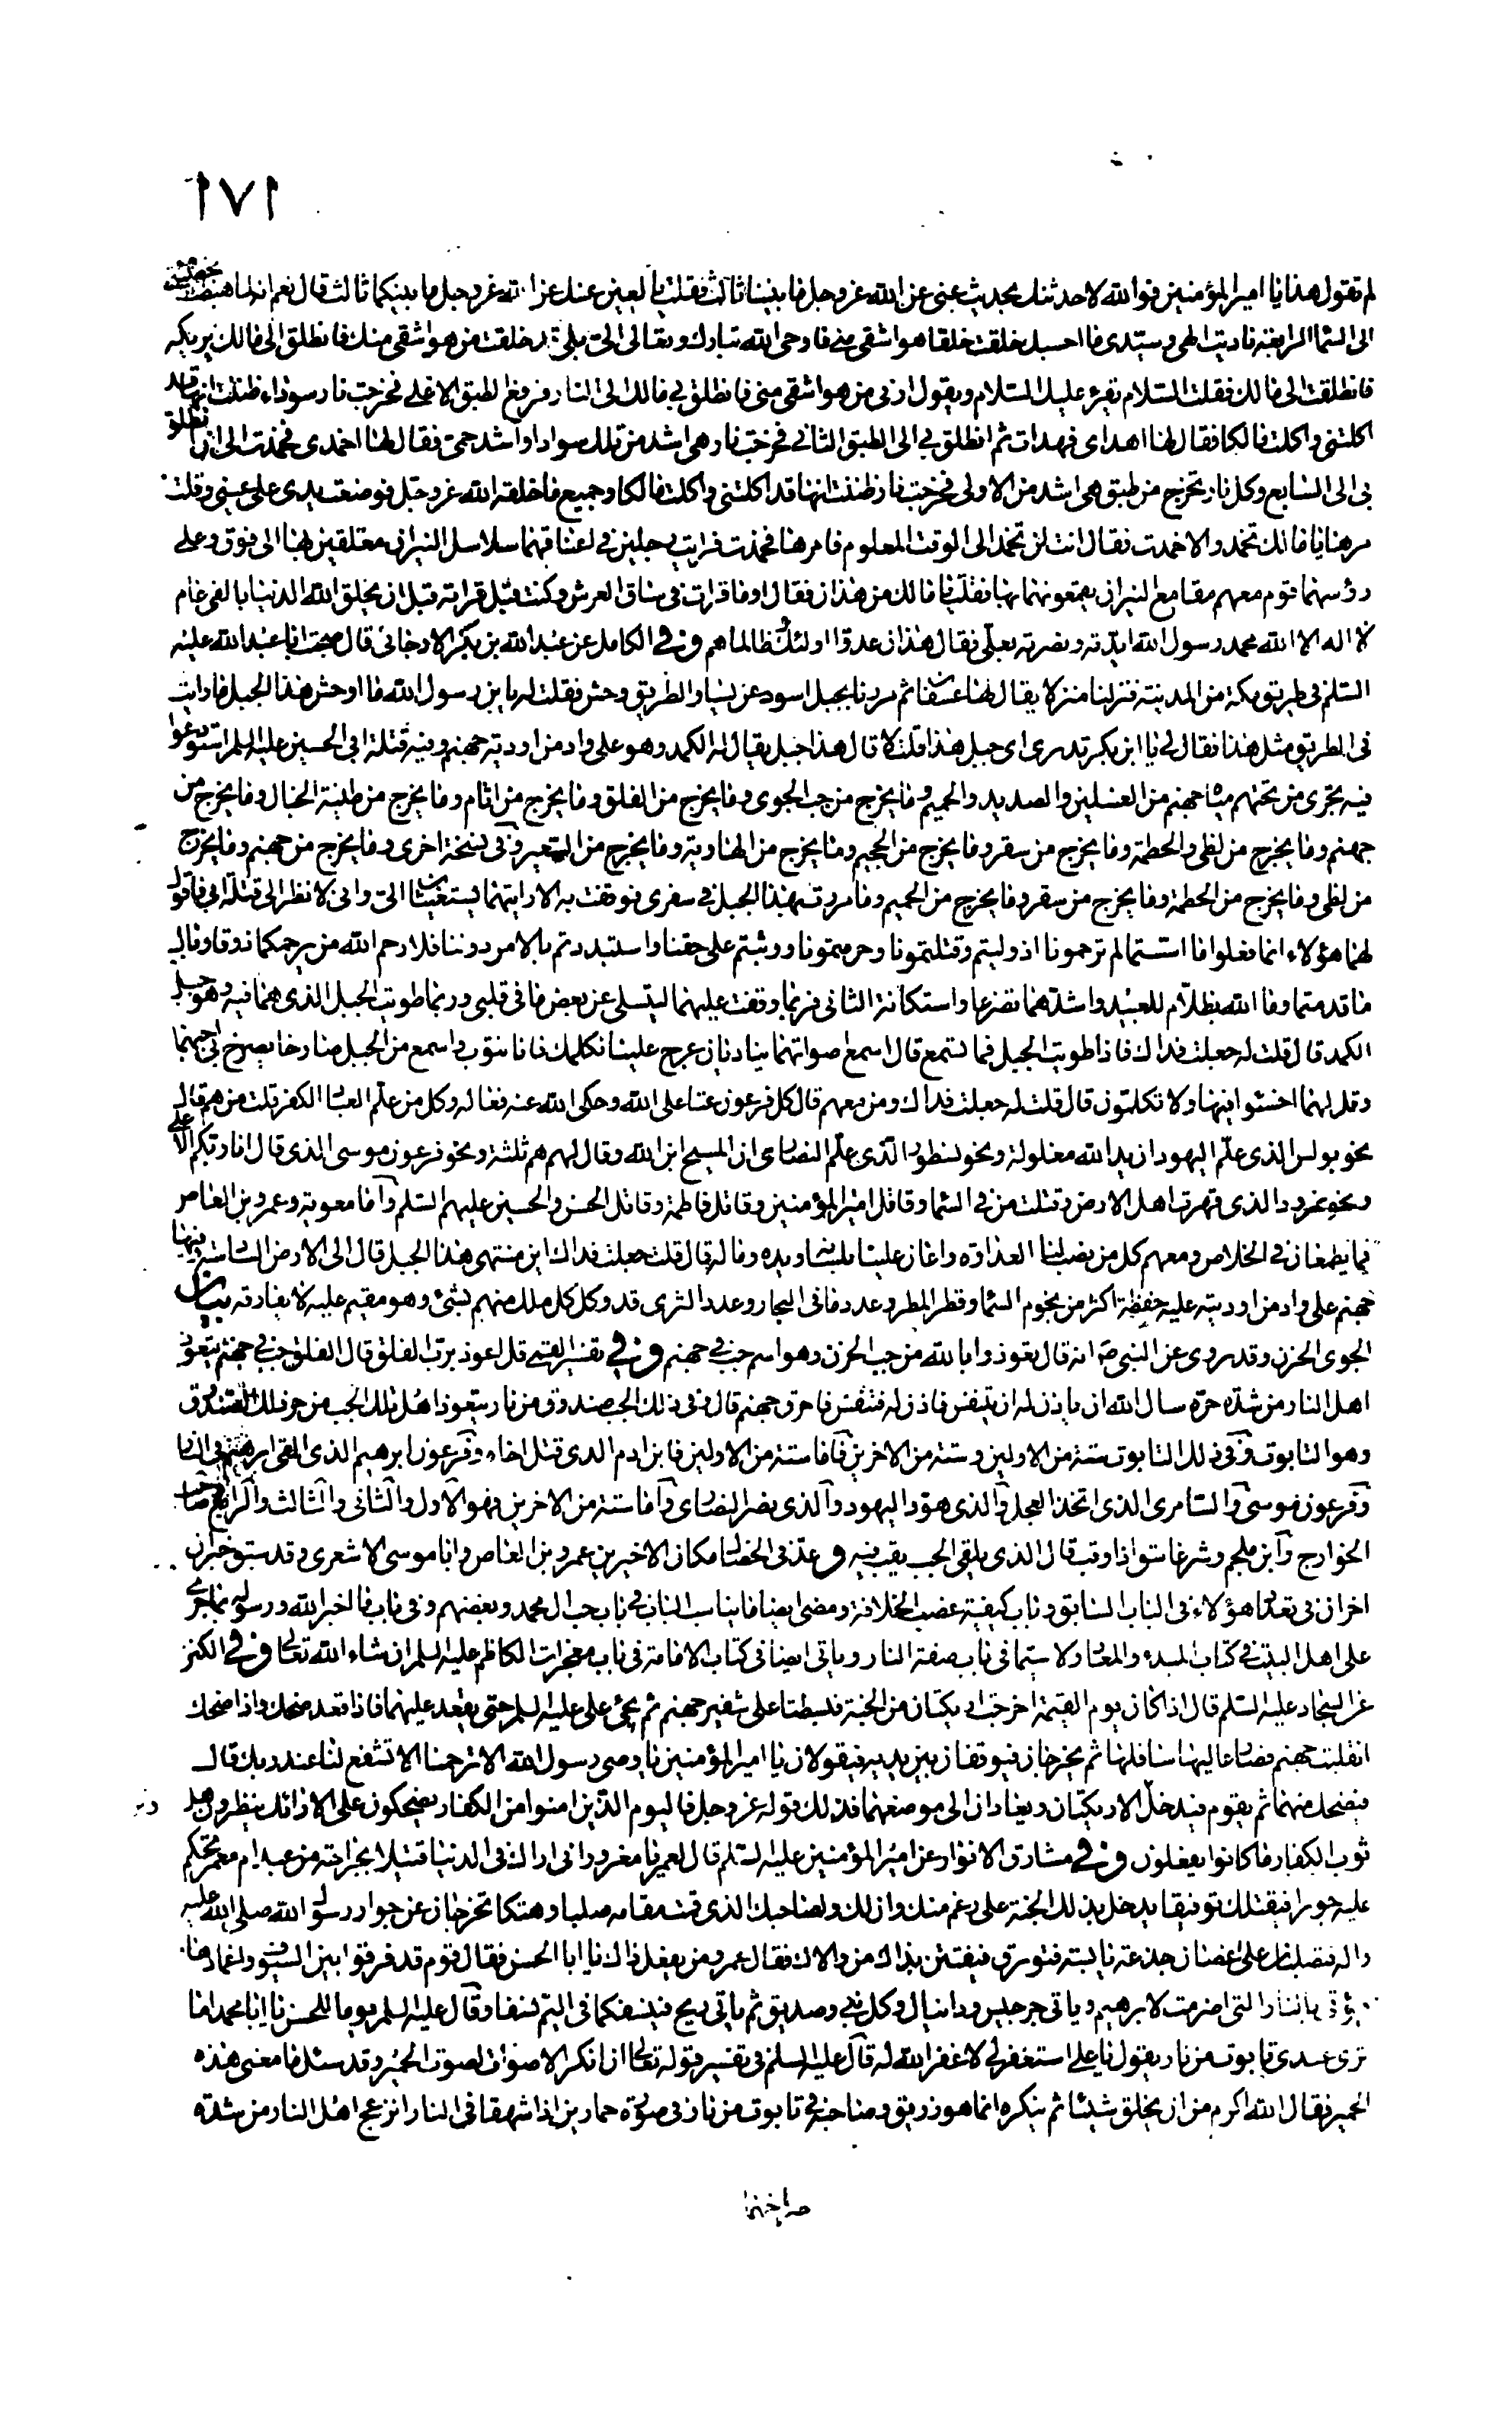 ١٧١
لم تقول هذا يا امير المؤمنين فوالله لاحدثنك بحديث عني عن الله عز وجل ما بيننا ثالث فقلت يا لعين عنك عن الله عز وجل ما بينكما ثالث قال نعم انه لما هبطت بخطيئتي
الى السماء الرابعة ناديت الهي وسيدي ما احسبك خلقت خلقا هو اشقى مني فاوحى الله تبارك وتعالى الي بلى قد خلقت من هو اشقى منك فانطلق الى مالك يريكه
فانطلقت الى مالك فقلت السلام يقرء عليك السلام ويقول ارني من هو اشقى مني فانطلق بي مالك الى النار فرفع الطبق الاعلى فخرجت نار سوداء ظننت انها قد
اكلتني واكلت مالكا فقال لها اهدأي فهدأت ثم انطلق بي الى الطبق الثاني فخرجت نار هي اشد من تلك سوادا واشد حمى فقال لها اخمدي فخمدت الى ان انطلق
بي الى السابع وكل نار تخرج من طبق هي اشد من الاولى فخرجت نار ظننت انها قد اكلتني واكلت مالكا وجميع ما خلقه الله عز وجل فوضعت يدي على عيني وقلت
مرها يا مالك تخمد والا خمدت فقال انت لن تخمد الى الوقت المعلوم فامرها فخمدت فرايت رجلين في اعناقهما سلاسل النيران معلقين بها الى فوق وعلى
رؤسهما قوم معهم مقامع النيران يقمعونهما بها فقلت يا مالك من هذان فقال اوما قرات في ساق العرش وكنت قبل قراته قبل ان يخلق الله الدنيا بالفي عام
لا اله الا الله محمد رسول الله ايدته ونصرته بعلي فقال هذان عدوا اولئك وظالماهم وفي الكامل عن عبد الله بن بكر الارجاني قال صحبت ابا عبد الله عليه
السلم في طريق مكة من المدينة فنزلنا منزلا يقال لها عسفان ثم مررنا بجبل اسود عن يسار الطريق وحش فقلت له يا بن رسول الله ما اوحش هذا الجبل ما رايت
في الطريق مثل هذا فقال لي يا ابن بكر تدري اي جبل هذا قلت لا قال هذا جبل يقال له الكمد وهو على واد من اودية جهنم وفيه قتلة ابي الحسين عليه السلم استودعوا
فيه تجري من تحتهم مياه جهنم من الغسلين والصديد والحميم وما يخرج من جب الجوى وما يخرج من الفلق وما يخرج من اثام وما يخرج من طينة الخبال وما يخرج من
جهنم وما يخرج من لظى والحطمة وما يخرج من سقر وما يخرج من الجحيم وما يخرج من الهاوية وما يخرج من السعير وفي نسخة اخرى وما يخرج من جهنم وما يخرج
من لظى وما يخرج من الحطمة وما يخرج من سقر وما يخرج من الحميم وما مررت بهذا الجبل في سفري فوقفت به الا رايتهما يستغيثان الي واني لانظر الى قتلة ابي فاقول
لهما هؤلاء انما فعلوا ما استما لم ترحمونا اذ وليتم وقتلتمونا وحرمتمونا ووثبتم على حقنا واستبددتم بالامر دوننا فلا رحم الله من يرحمكما ذوقا وبال
ما قدمتما وما الله بظلام للعبيد واشدهما تضرعا واستكانة الثاني فربما وقفت عليهما ليتسلى عن بعض ما في قلبي وربما طويت الجبل الذي هما فيه وهو جبل
الكمد قال قلت له جعلت فداك فاذا طويت الجبل فما تسمع قال اسمع اصواتهما يناديان عرج علينا نكلمك فانا نتوب واسمع من الجبل صارخا يصرخ بي اجبهما
وقل لهما اخسئوا فيها ولا تكلمون قال قلت له جعلت فداك ومن معهم قال كل فرعون عتا على الله وحكى الله عنه فعاله وكل من علم العباد الكفر قلت من هم قال
نحو بولس الذي علم اليهود ان يد الله مغلولة ونحو نسطور الذي علم النصارى ان المسيح ابن الله وقال لهم هم ثلثة ونحو فرعون موسى الذي قال انا ربكم الاعلى
ونحو نمرود الذي قهرت اهل الارض وقتلت من في السماء وقاتل امير المؤمنين وقاتل فاطمة وقاتل الحسن والحسين عليهم السلم واما معوية وعمرو بن العاص
فما يطمعان في الخلاص ومعهم كل من نصب لنا العداوة واعان علينا بلسانه ويده وماله قال قلت جعلت فداك اين منتهى هذا الجبل قال الى الارض السادسة وفيها
جهنم على واد من اوديته عليه حفظة اكثر من نجوم السماء وقطر المطر وعدد ما في البحار وعدد الثرى قد وكل كل ملك منهم بشئ وهو مقيم عليه لا يفارقه بيان
الجوى الحزن وقد روى عن النبي ص انه قال تعوذوا بالله من جب الحزن وهو اسم جب في جهنم وفي تفسير القمي قل اعوذ برب الفلق قال الفلق جب في جهنم يتعوذ
اهل النار من شدة حره سال الله ان ياذن له ان يتنفس فاذن له فتنفس فاحرق جهنم قال وفي ذلك الجب صندوق من نار يتعوذ اهل تلك الجب من حر ذلك الصندوق
وهو التابوت وفي ذلك التابوت ستة من الاولين وستة من الاخرين فاما ستة من الاولين فابن ادم الذي قتل اخاه وفرعون ابرهيم الذي القى ابرهيم في النار
وفرعون موسى والسامري الذي اتخذ العجل والذي هود اليهود والذي نصر النصارى واما ستة من الاخرين فهو الاول والثاني والثالث والرابع وصاحب
الخوارج وابن ملجم وشر غاسق اذا وقب قال الذي يلقى الجب يقب فيه وعد في الخصال مكان الاخيرين عمرو بن العاص وابا موسى الاشعري وقد سبق خبران
اخران في تعداد هؤلاء في الباب السابق وباب كيفية غصب الخلافة ومضى ايضا ما يناسب الباب في باب حب ال محمد وبغضهم وفي باب ما اخبر الله ورسوله بما جرى
على اهل البيت في كتاب المبدء والمعاد ولا سيما في باب صفة النار وياتي ايضا في كتاب الامامة في باب معجزات الكاظم عليه السلم ان شاء الله تعالى وفي الكنز
عن السجاد عليه السلم قال اذا كان يوم القيمة اخرجت اريكتان من الجنة فبسطتا على شفير جهنم ثم يجئ علي عليه السلم حتى يقعد عليهما فاذا قعد ضحك واذا ضحك
انقلبت جهنم فصار عاليها سافلها ثم يخرجان فيوقفان بين يديه فيقولان يا امير المؤمنين يا وصي رسول الله الا ترحمنا الا تشفع لنا عند ربك قال
فيضحك منهما ثم يقوم فيدخل الاريكتان ويعادان الى موضعهما فذلك قوله عز وجل فاليوم الذين امنوا من الكفار يضحكون على الارائك ينظرون هل
ثوب الكفار ما كانوا يفعلون وفي مشارق الانوار عن امير المؤمنين عليه السلم قال لعمر يا مغرور اني اراك في الدنيا قتيلا بجراحة من عبد ام معمر تحكم
عليه جورا فيقتلك توفيقا يدخل بذلك الجنة على رغم منك وان لك ولصاحبك الذي قمت مقامه صلبا وهتكا تخرجان عن جوار رسول الله صلى الله عليه
واله فتصلبان على اغصان جذعة يابسة فتورق فيفتتن بذلك من والاك فقال عمرو من يفعل ذلك يا ابا الحسن فقال قوم قد فرقوا بين السيوف واغمادها
يؤتى بالنار التي اضرمت لابرهيم وياتي جرجيس ودانيال وكل نبي وصديق ثم ياتي ريح فينسفكما في اليم نسفا وقال عليه السلم يوما للحسن يا ابا محمد اما
ترى عندي تابوت من نار يقول يا علي استغفر لي لا غفر الله له قال عليه السلم في تفسير قوله تعالى ان انكر الاصوات لصوت الحمير وقد سئل ما معنى هذه
الحمير فقال الله اكرم من ان يخلق شيئا ثم ينكره انما هو زريق وصاحبه في تابوت من نار في صورة حمارين اذا شهقا في النار انزعج اهل النار من شدة
صراخهما